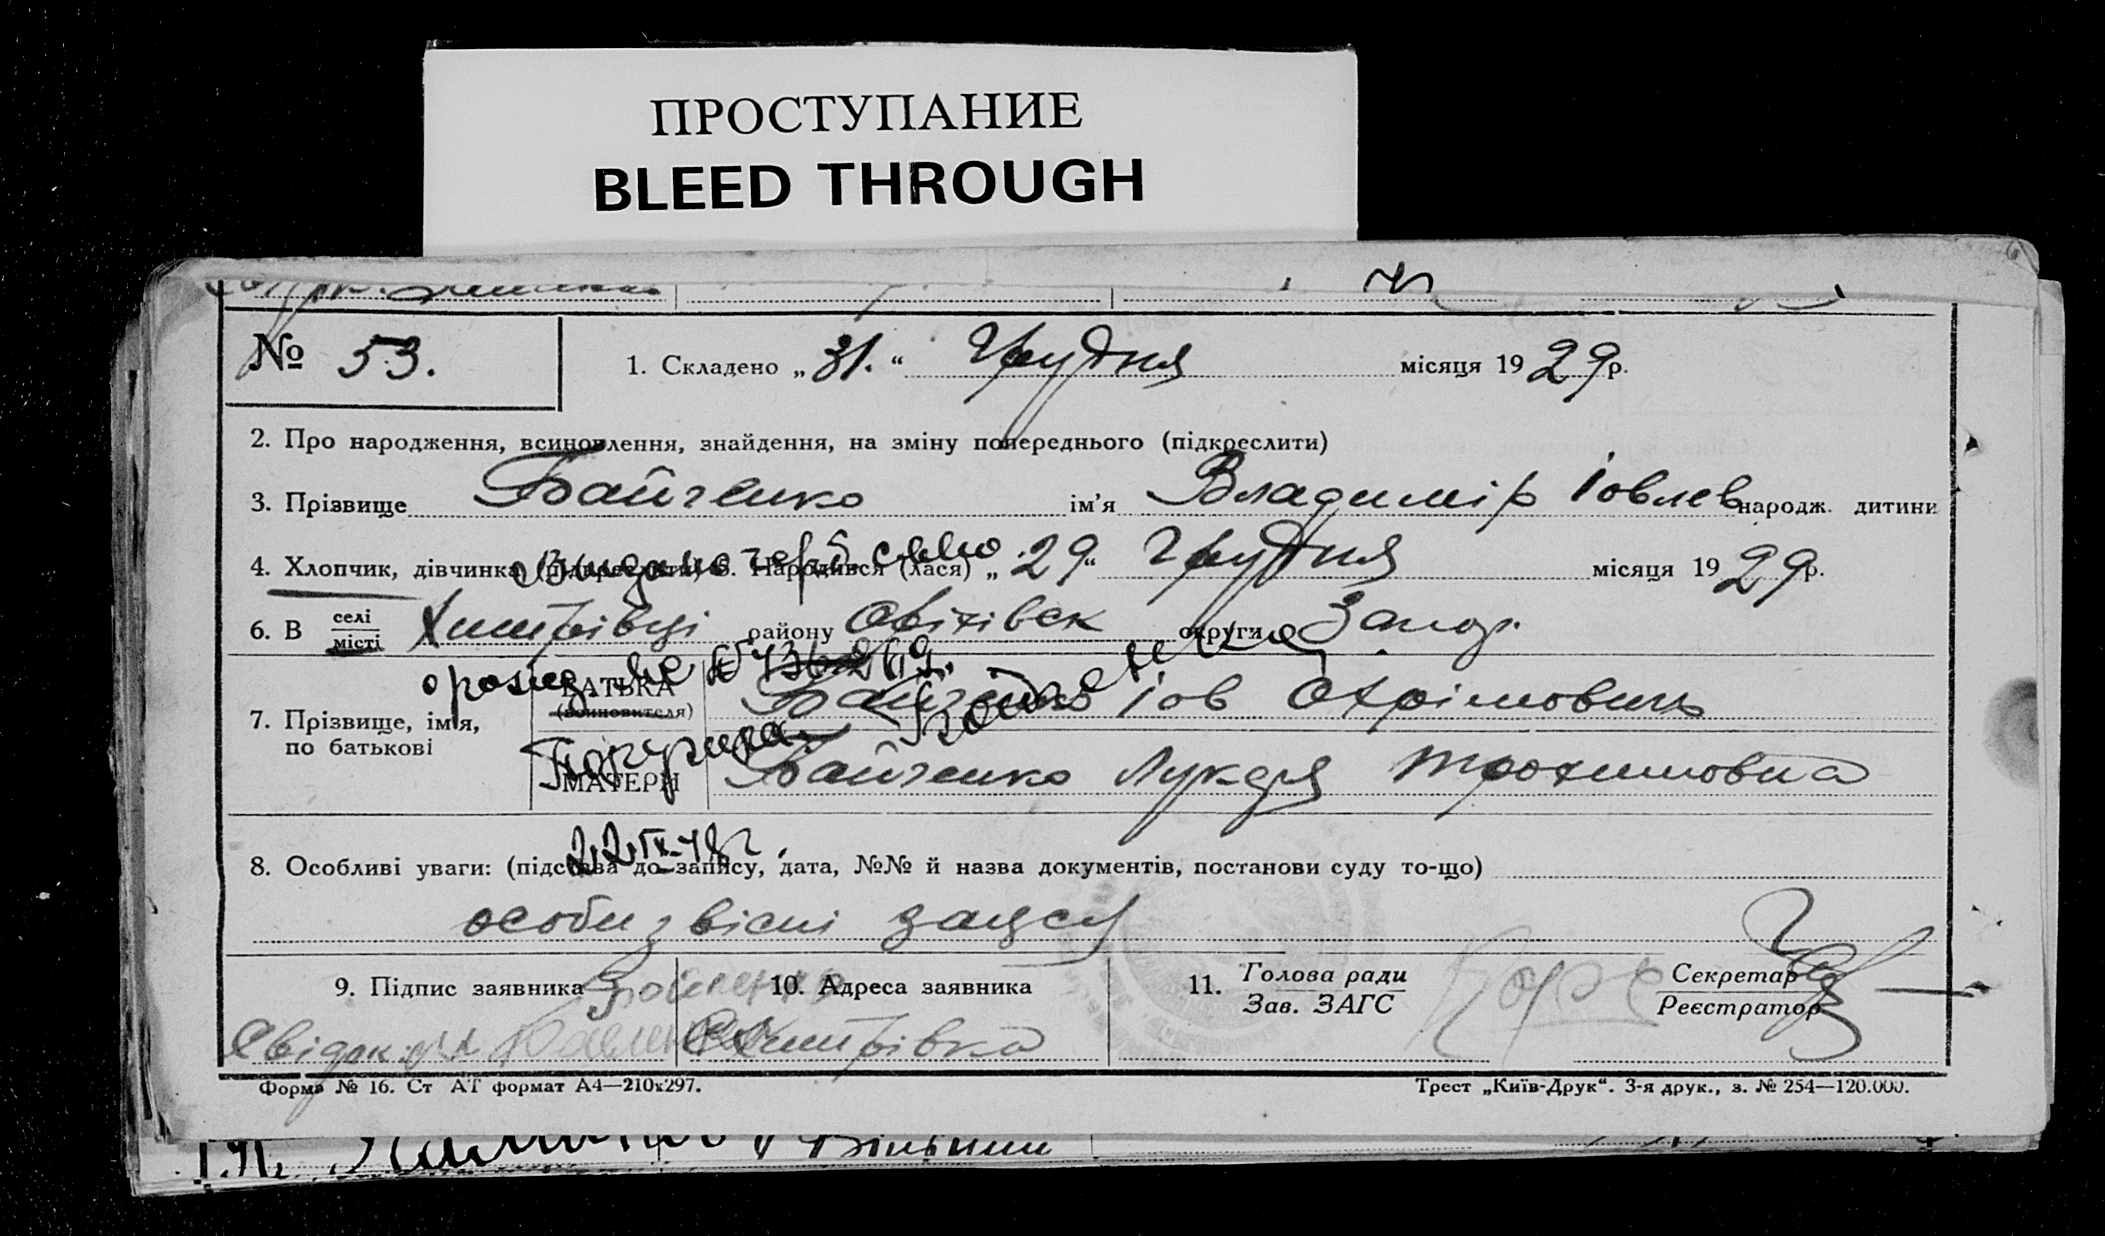 ПРОСТУПАНИЕ
BLEED THROUGH
№ 53.
1. Складено „31.“ Грудня місяця 1929р.
2. Про народження, всиновлення, знайдення, на зміну попереднього (підкреслити)
3. Прізвище Байченко ім’я Владимір Іовлев народж. дитини
4. Хлопчик, дівчинка (підкреслити) 5. Народився (лася) „29“ Грудня місяця 1929р.
6. В селі місті Хитрівці району Оріхівск округи Запор.
7. Прізвище, ім’я, по батькові
БАТЬКА (всиновителя) Байченко Іов Охрімович
МАТЕРИ Байченко Лукеря Трохимовна
22.IX-48г.
8. Особливі уваги: (підстава до запису, дата, №№ й назва документів, постанови суду то-що)
особи звісні
9. Підпис заявника
10. Адреса заявника
Хитрівка
11. Голова ради
Зав. ЗАГС
Секретар
Реєстратор
Форма № 16. Ст АТ формат А4—210х297.
Трест „Київ-Друк“. 3-я друк., з. № 254—120.000.